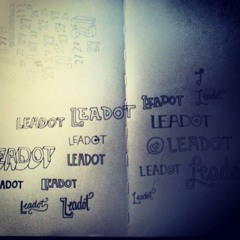 LEADOT
LEADOT
LEADOT
Leadot
LEADOT
LEADOT
@LEADOT
LEADOT
LEADOT
LEADOT
LEADOT
Leadot
LEADOT
LEADOT
Leadot
Leadot
Leadot